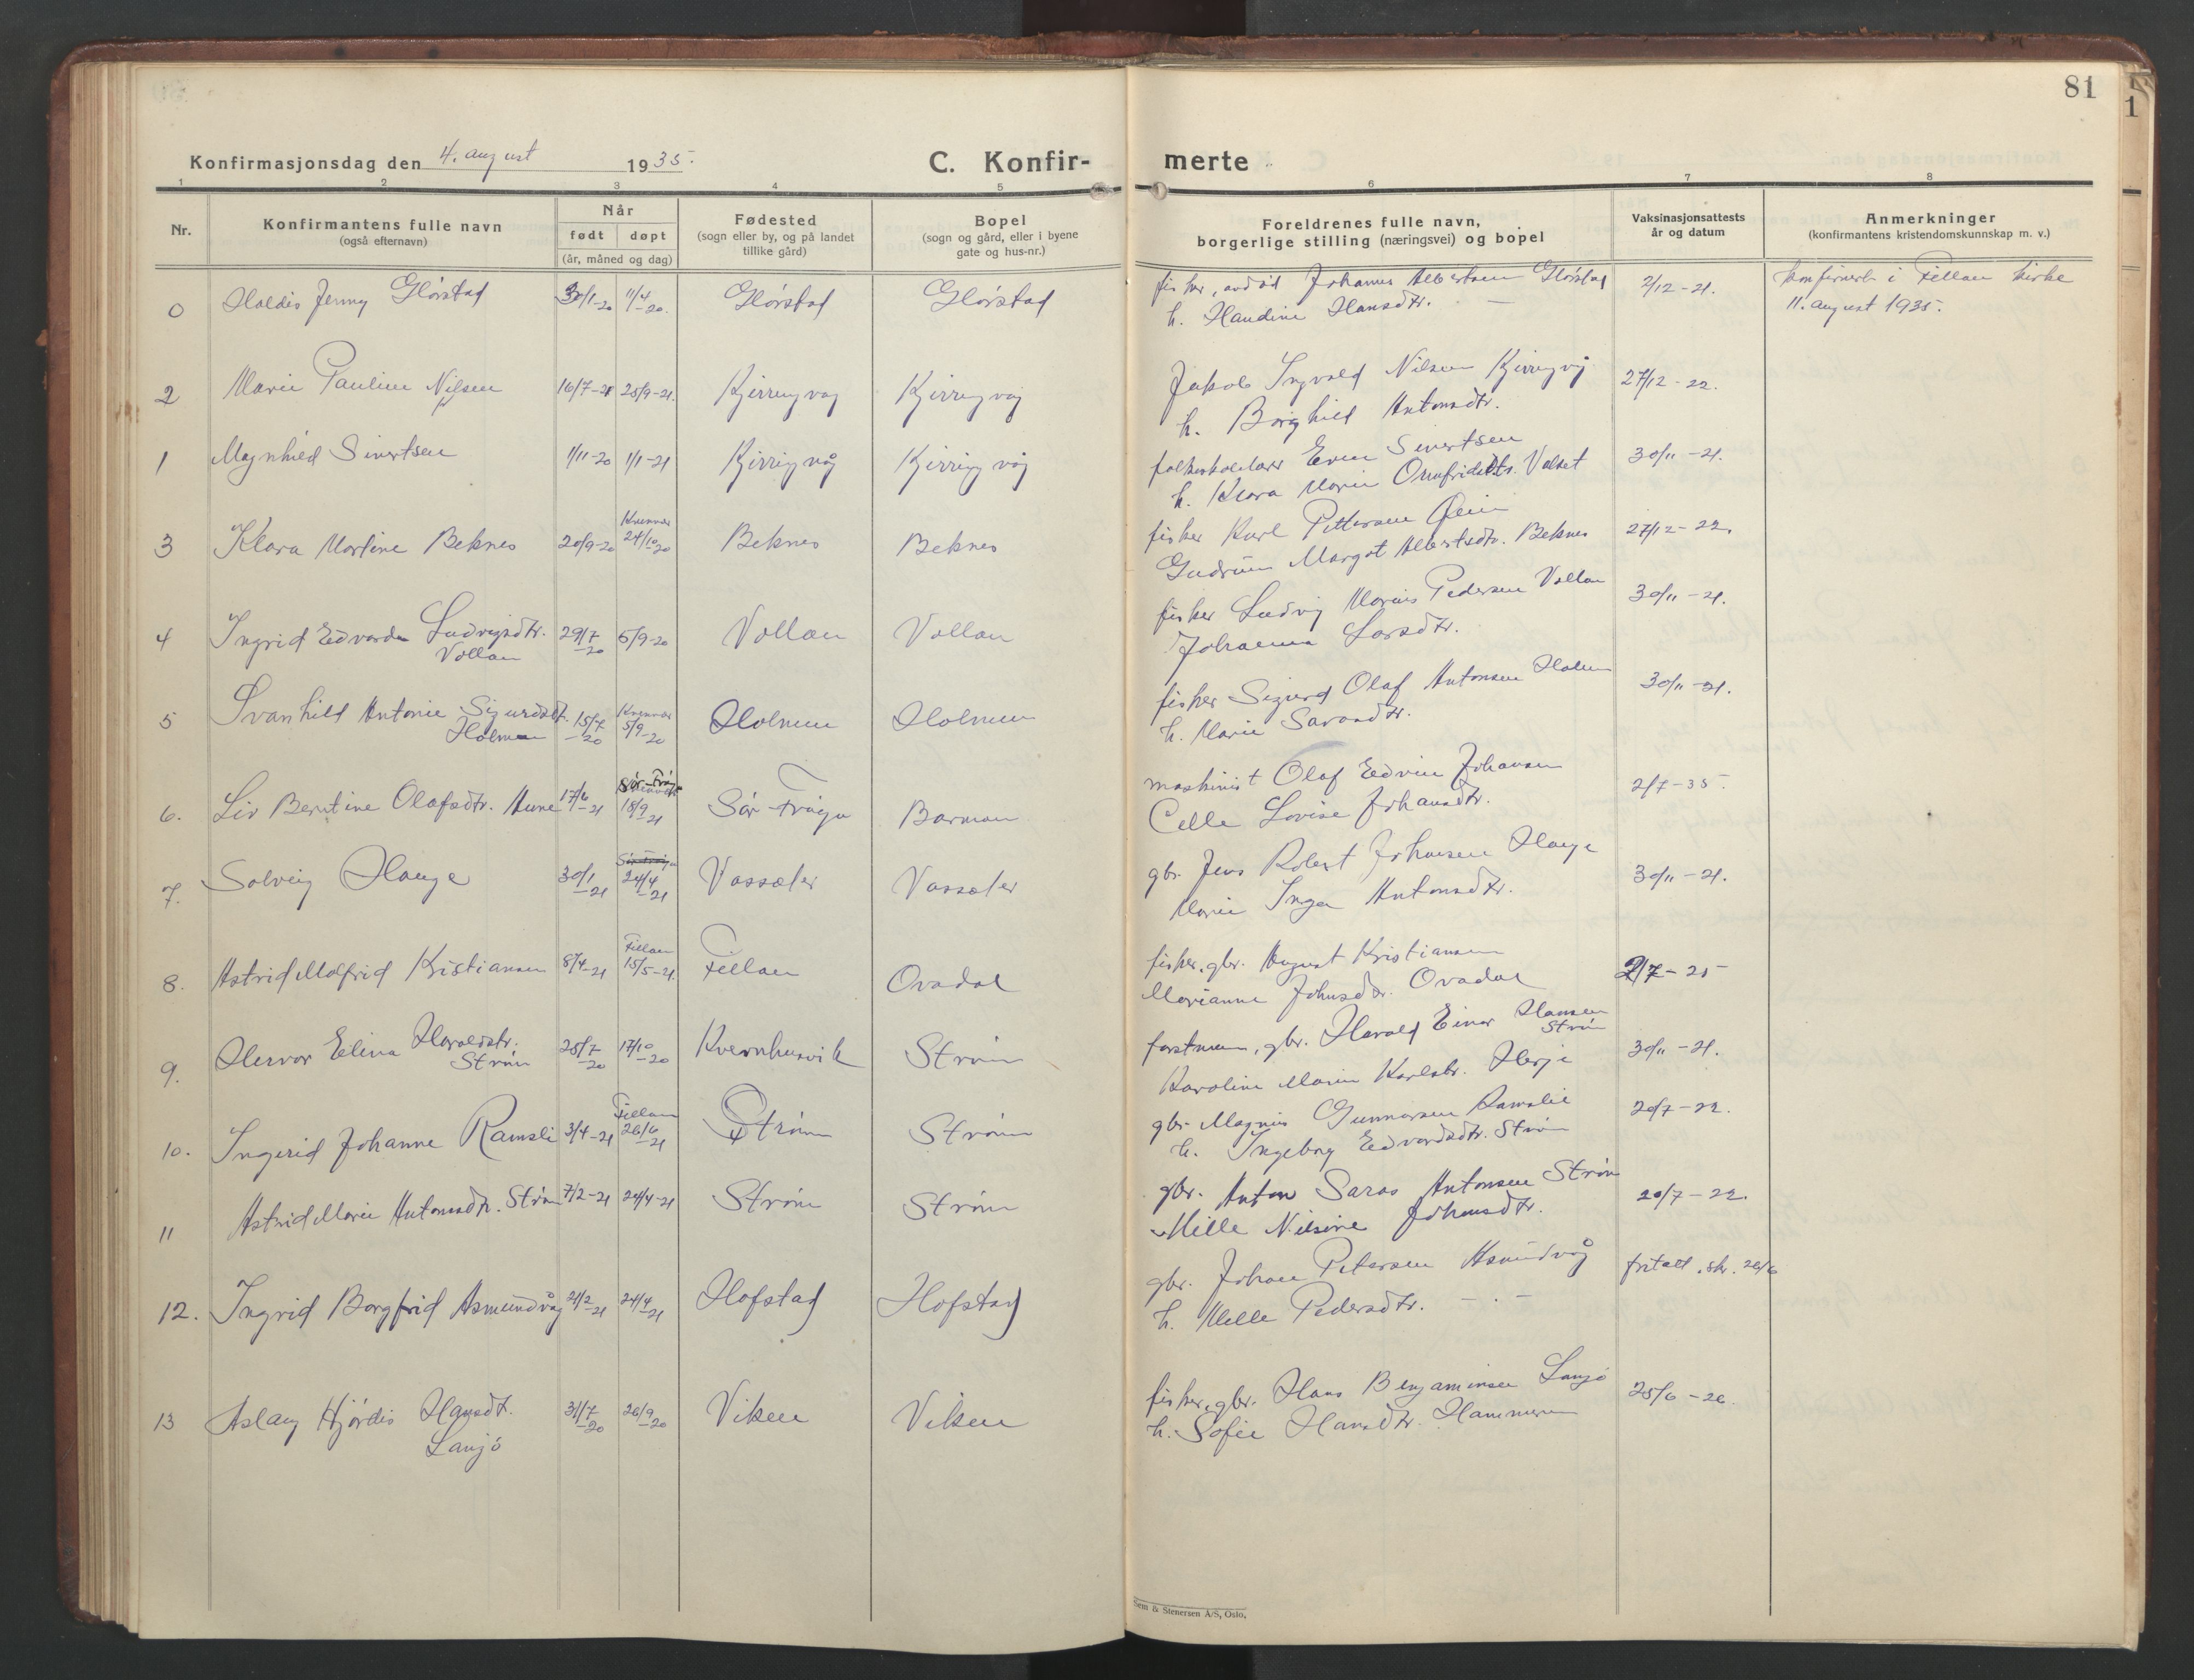 81
Konfirmasjonsdag den 4. august 1935.
C. Konfir-
merte
1 2 3 4 5 6 7 8
Nr.
Konfirmantens fulle navn
(også efternavn)
Når
født døpt
(år, måned og dag)
Fødested
(sogn eller by, og på landet
tillike gård)
Bopel
(sogn og gård, eller i byene
gate og hus-nr.)
Foreldrenes fulle navn,
borgerlige stilling (næringsvei) og bopel
Vaksinasjonsattests
år og datum
Anmerkninger
(konfirmantens kristendomskunnskap m. v.)
0 Haldis Jenny Glørstad 30/1-20 11/4-20. Glørstad Glørstad
fisker, avdød Johannes Albertsen Glørstad 2/12-21. konfirmert i Fillan kirke
h. Haudine Hansdtr. — 11. august 1935.
2 Marie Pauline Nilsen 16/7-21 25/9-21. Kjerringvåg Kjerringvåg
Jakob Ingvald Nilsen Kjerringvåg 27/12-22.
h. Borghild Antonsdtr.
1 Magnhild Sivertsen 1/11-20 1/1-21 Kjerringvåg Kjerringvåg
folkeskolelærer Even Sivertsen 30/11-21.
h. Klara Marie Onufridsdtr. Valset
3 Klara Martine Beknes 20/9-20 Kvenvær 24/10-20 Beknes Beknes
fisker Karl Pettersen 27/12-22.
Gudrun Margot Albertsdtr. Beknes
4 Ingrid Edvarda Ludvigsdtr. 29/7-20 5/9-20 Vollan Vollan
Vollan
fisker Ludvig Marius Pedersen Vollan 30/11-21.
Johanna Larsdtr.
5 Svanhild Antonie Sigurdsdt. 15/7-20 Kvenvær 5/9-20 Holmen Holmen
Holmen
fisker Sigurd Olaf Antonsen Holmen 30/11-21.
h. Marie Sarasdtr.
6. Liv Berntine Olafsdtr. Aune 17/6-21 18/9-21 Sør-Frøya Barman
maskinist Olaf Edvin Johansen 2/7-35.
Celle Lovise Johansdtr.
7. Solveig Hauge 30/1-21 24/4-21 Vasseter Vasseter
gbr. Jens Robert Johansen Hauge 30/11-21.
Marie Inga Antonsdtr.
8. Astrid Malfrid Kristiansen 8/4-21 Fillan 15/5-21. Fillan Ovadal
fisker, gbr. August Kristiansen 2/7-25
Marianne Johnsdtr. Ovadal
9. Hervor Elina Haraldsdtr. 25/7-20 17/10-20 Kvernhusvik Strøm
Strøm
forstmann, gbr. Harald Einar Hansen Strøm 30/11-21.
Karoline Marie Karlsdtr. Herje
10. Ingerid Johanne Ramsli 3/4-21 Fillan 26/6-21 Strøm Strøm
gbr. Magnus Gunnarsen Ramslie 20/7-22.
h. Ingeborg Edvardsdtr. Strøm
11 Astrid Marie Antonsdtr. Strøm 7/2-21 24/4-21 Strøm Strøm
gbr. Anton Saras Antonsen Strøm 20/7-22.
Mille Nilsine Johansdtr.
12. Ingrid Borgfrid Asmundvåg 21/2-21 24/4-21 Hofstad Hofstad
gbr. Johan Petersen Asmundvåg fritatt. skr. 26/6
h. Mille Pedersdtr. — . —
13 Aslaug Hjørdis Hansdt. 31/7-20 26/9-20 Viken Viken
Langø
fisker, gbr. Hans Benjaminsen Langø 25/6-26.
h. Sofie Hansdtr. Hammeren
Sem & Stenersen A/S, Oslo.